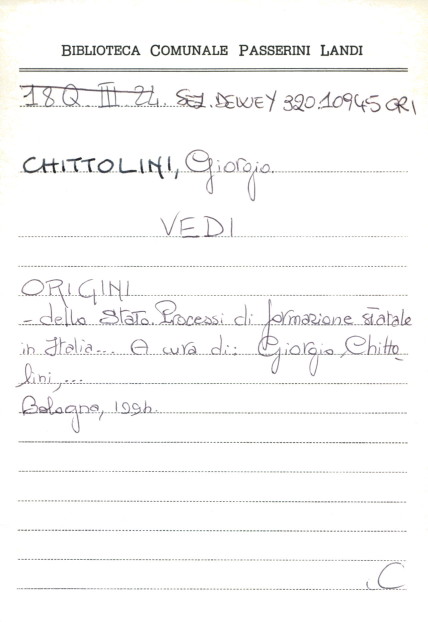 BIBLIOTECA COMUNALE PASSERINI LANDI
18Q. III 24. SEZ. DEWEY 320.10945 ORI
CHITTOLINI, Giorgio.
VEDI
ORIGINI
- dello Stato. Processi di formazione statale
in Italia... A cura di: Giorgio Chitto
lini,...
Bologna, 1994.
.C